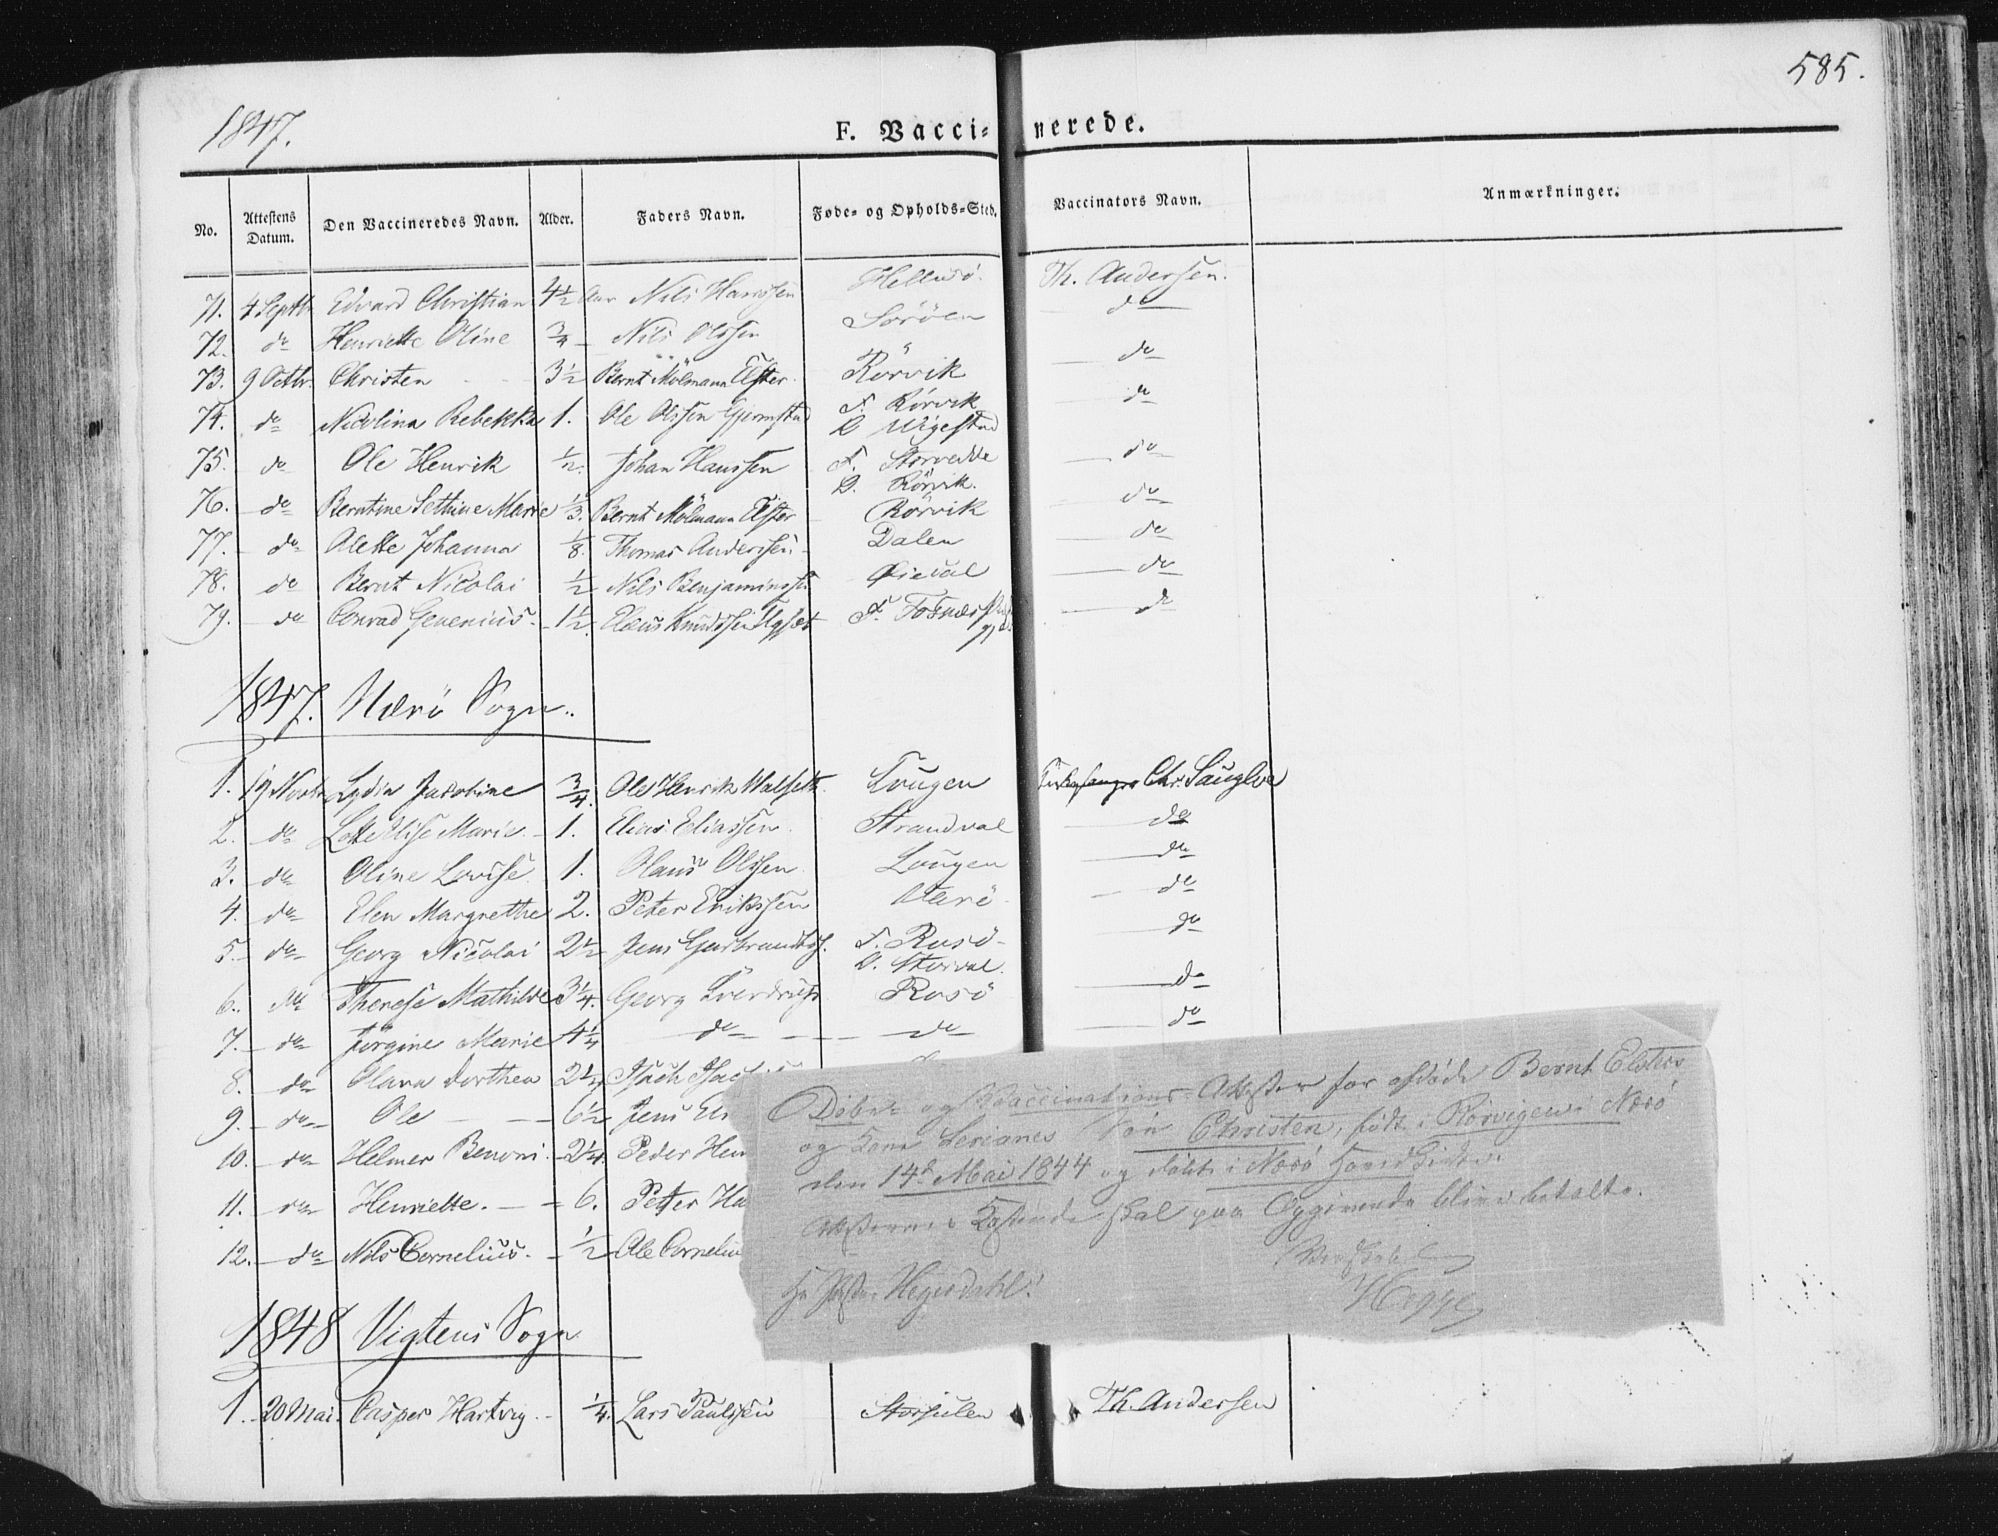 585.
1847.
F. Vaccinerede.
No. Attestens Datum. Den Vaccineredes Navn. Alder. Faders Navn. Føde- og Opholds-Sted. Vaccinators Navn. Anmærkninger.
71. 4 Septbr Edvard Christian 4½ Aar Nils Hanssen Th. Andersen.
72. do Henriette Oline ¾ Nils Olssen Söröen do
73. 9 Octbr. Christen 3½ Bernt Mölmann Elster Rörvik do
74. do Nicolina Rebekka 1. Ole Olssen F. Rörvik do
O Vigestad
75. do Ole Henrik Johan Hanssen F. do
O. Rörvik.
76. do Berntine Sethine Marie ⅓. Bernt Mölmann Elster Rörvik do
77. do Alette Johanna ⅛. Thomas Anderssen Dalen do
78. do Bernt Nicolai ½ Nils Benjaminssen do
79. do Conrad 1½ Knudssen F. Fosnæs do
1847. Nærö Sogn.
1. 19 Novbr Lydia Jacobine ¾. Ole Henrik Walseth Lougen Kirkesanger Chr.
2. do Lotte Elise Marie 1. Elias Eliassen Strandval do
3. do Oline Lovise 1. Olaus Olssen Lougen do
4. do Elen Margrethe 2. Peter Erikssen do
5. do Georg Nicolai 2½ Jens F. Rosö do
O. Storval.
6. do Therese Mathilde 3¼. Georg Rosö do
7. do Jörgine Marie 4¼ do do do
8. do Olava Dorthea
9. do Ole 6½ Jens
10. do Helmer Benoni 2¼. Peder
11. do Henriette. 6. Petter
12. do Nils Cornelius. ½ Ole
Döbe- og Vaccinations-Attester for afdöde Bernt Elsters
og Kone Serianes Sön Christen, födt i Rörvigen i Nærö
den 14de Mai 1844 og döbt i Nærö
skal paa Opgivende blive betalte.
Hegerdahl.
1848 Vigtens Sogn
1. 20 Mai. Casper Hartvig ¼. Lars Paulssen Th. Andersen